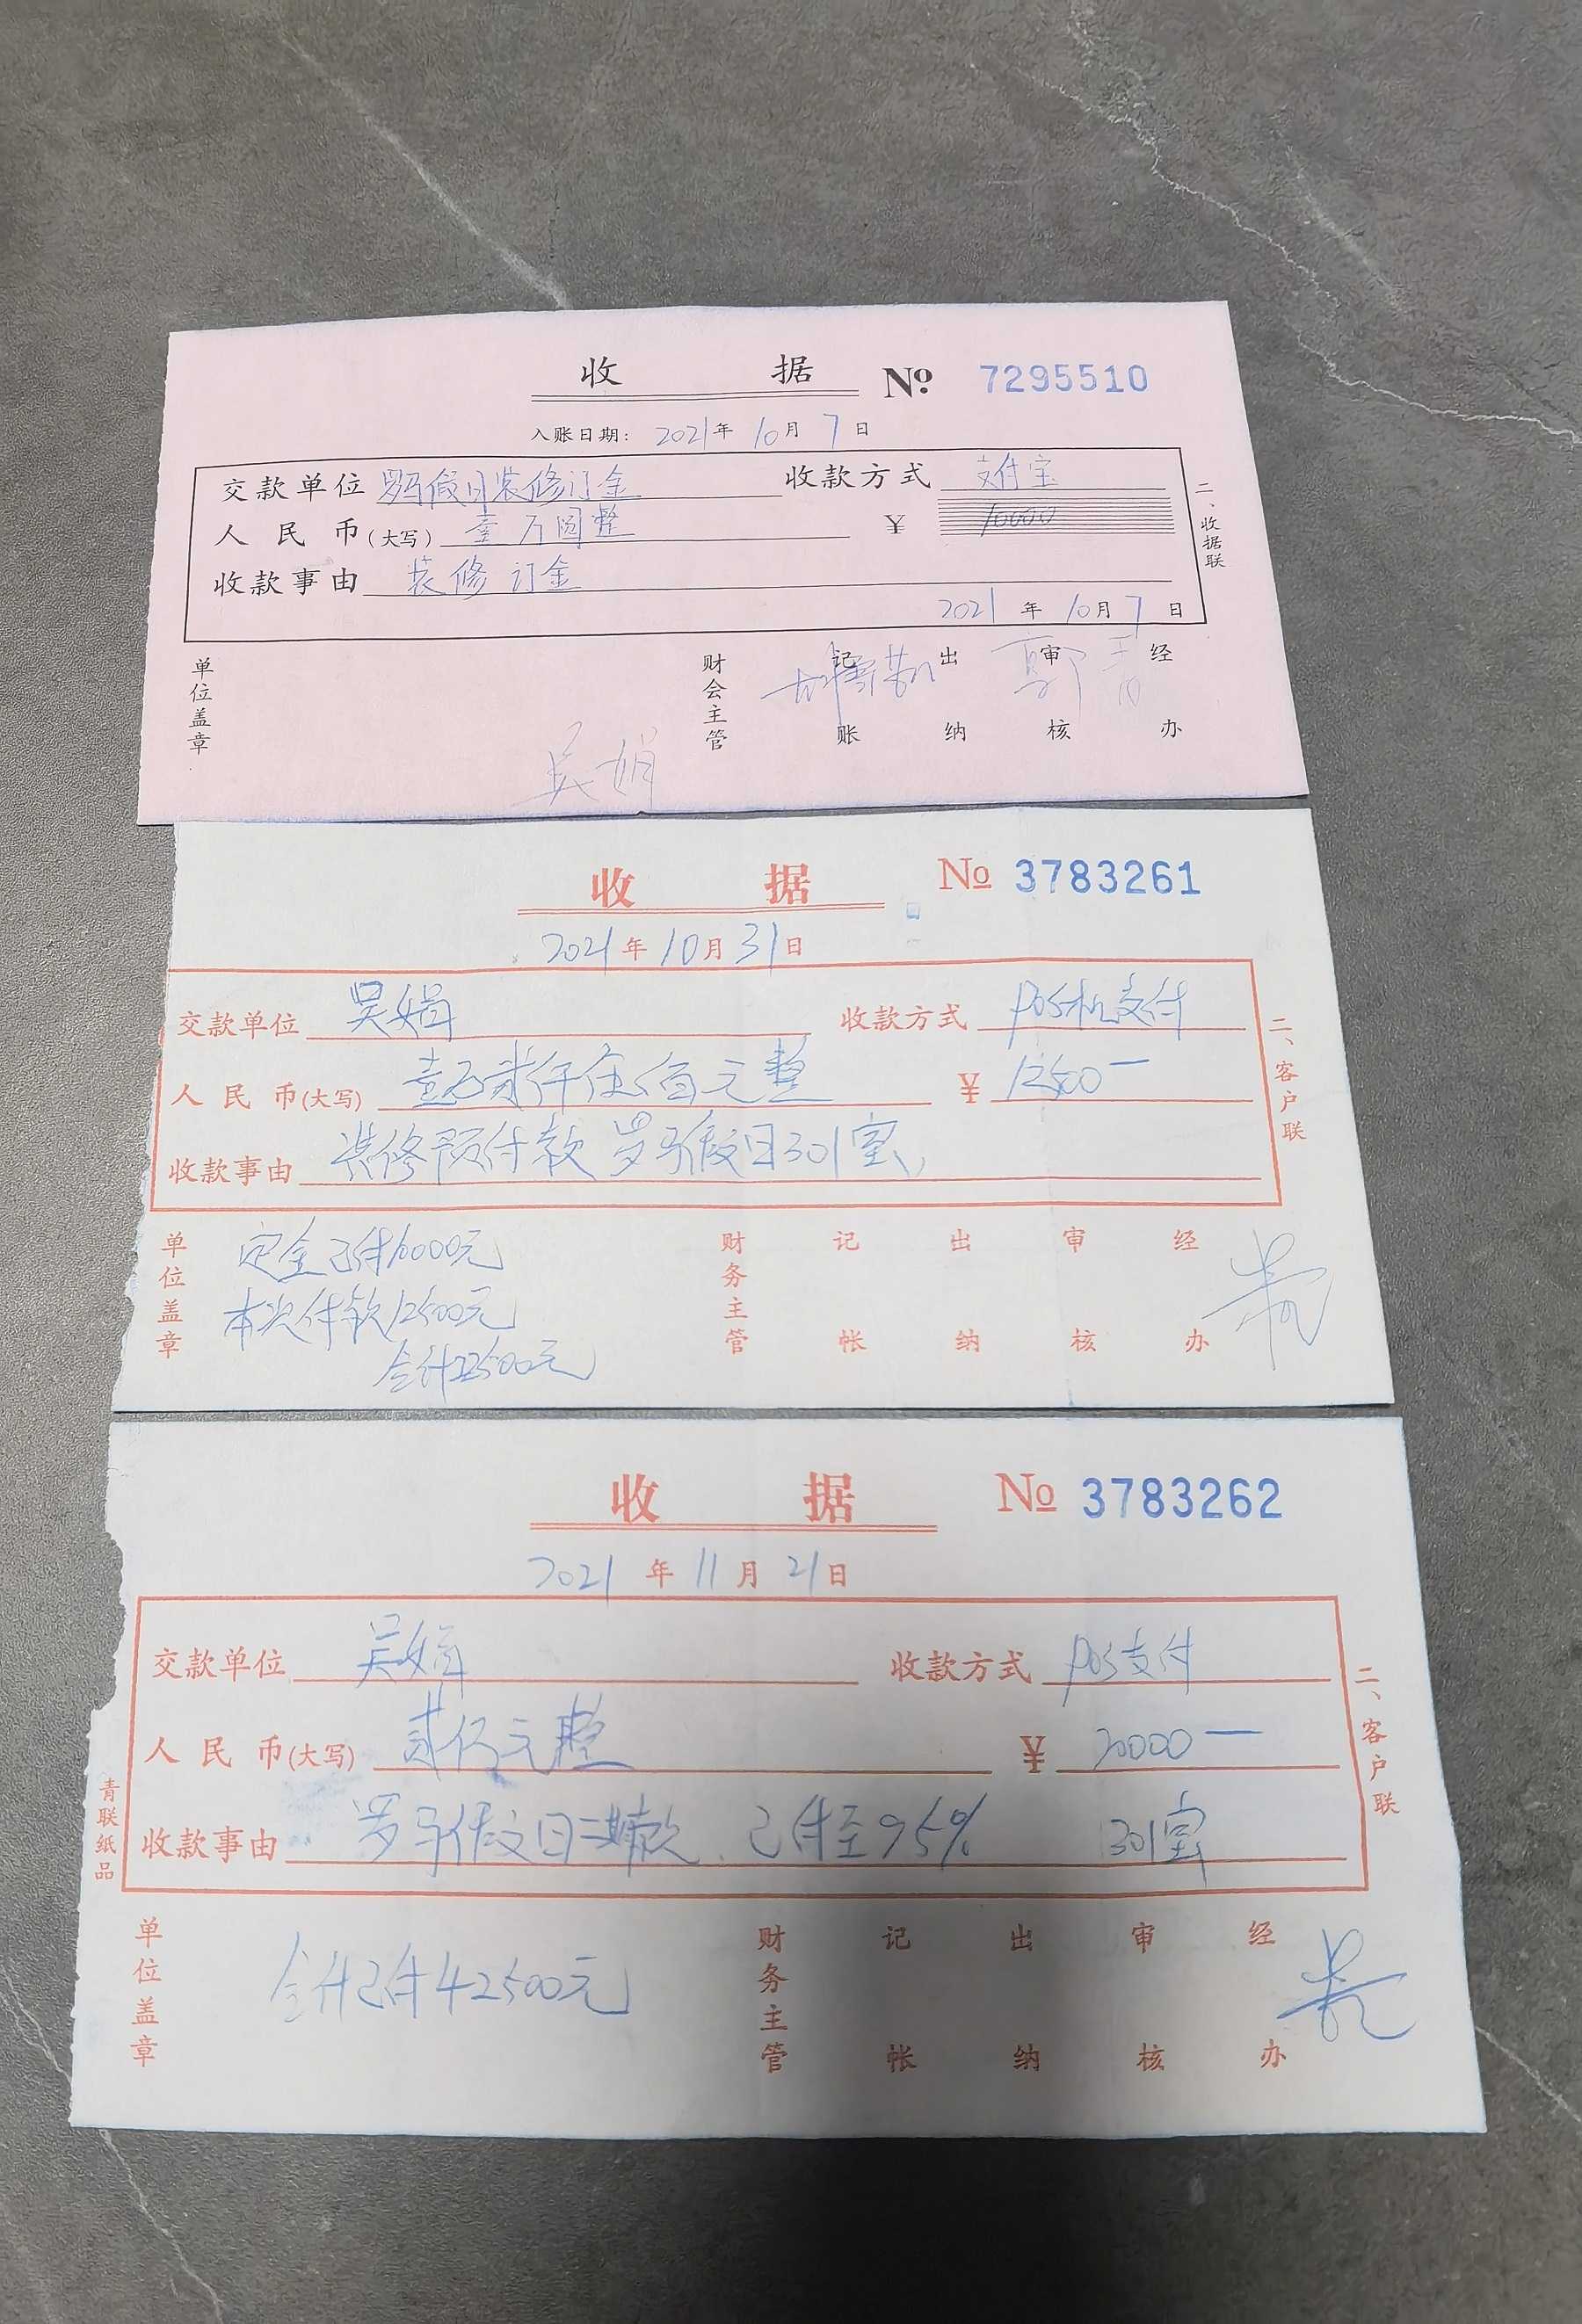 收 据 Nº 7295510
入账日期: 2021年 10月 7日
交款单位 罗马假日装修订金 收款方式 支付宝
人民币(大写) 壹万圆整 ¥ 10000
收款事由 装修订金
2021年 10月 7日
二、收据联
单位盖章 财会主管 记账 出纳 审核 经办
吴娟
收 据 No 3783261
2021年 10月 31日
交款单位 吴娟 收款方式 POS机支付
人民币(大写) 壹万贰仟伍佰元整 ¥ 12500—
收款事由 装修预付款 罗马假日301室
二、客户联
单位盖章 财务主管 记帐 出纳 审核 经办
定金已付10000元
本次付款12500元
合计22500元
收 据 No 3783262
2021年 11月 21日
交款单位 吴娟 收款方式 POS支付
人民币(大写) 贰万元整 ¥ 20000—
收款事由 罗马假日二期款 已付至95% 301室
二、客户联
青联纸品
单位盖章 财务主管 记帐 出纳 审核 经办
合计已付42500元